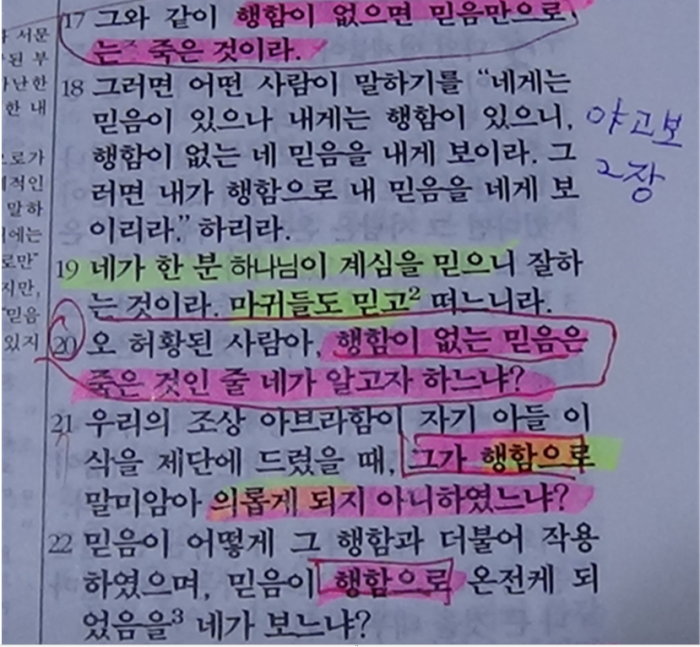 17 그와 같이 행함이 없으면 믿음만으로
는 죽은 것이라.
18 그러면 어떤 사람이 말하기를 “네게는
믿음이 있으나 내게는 행함이 있으니,
행함이 없는 네 믿음을 내게 보이라. 그
러면 내가 행함으로 내 믿음을 네게 보
이리라.” 하리라.
19 네가 한 분 하나님이 계심을 믿으니 잘하
는 것이라. 마귀들도 믿고² 떠느니라.
20 오 허황된 사람아, 행함이 없는 믿음은
죽은 것인 줄 네가 알고자 하느냐?
21 우리의 조상 아브라함이 자기 아들 이
삭을 제단에 드렸을 때, 그가 행함으로
말미암아 의롭게 되지 아니하였느냐?
22 믿음이 어떻게 그 행함과 더불어 작용
하였으며, 믿음이 행함으로 온전케 되
었음을³ 네가 보느냐?
야고보
2장
서문
된 부
난한
한 내
로가
적인
말하
에는
로만”
지만,
“믿음
있지